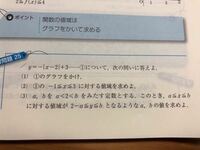 2≦f(x)≦4
ポイント
関数の値域は
グラフをかいて求める
問題 25
y=-|x-2|+3……①について，次の問いに答えよ。
(1) ①のグラフをかけ。
(2) ①の -1≦x≦3 に対する値域を求めよ。
(3) a，b を a<2<b をみたす定数とする。このとき，a≦x≦b
に対する値域が 2-a≦y≦b となるような a，b の値を求めよ。